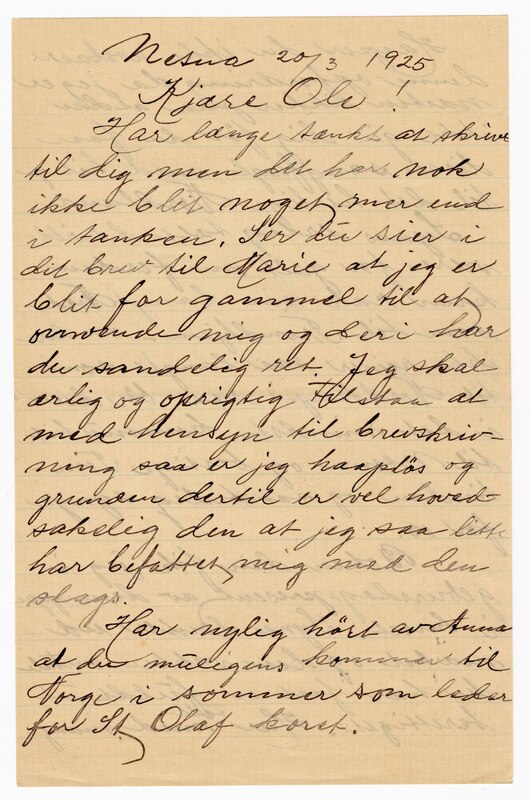 Nesna 20/3 1925
Kjære Ole!
Har længe tænkt at skrive
til dig men det har nok
ikke blit noget mer end
i tanken. Ser du sier i
dit brev til Marie at jeg er
blit for gammel til at
omvende mig og deri har
du sandelig ret. Jeg skal
ærlig og oprigtig tilstaa at
med hensyn til brevskriv-
ning saa er jeg haapløs og
grunden dertil er vel hoved-
sakelig den at jeg saa litt
har befattet mig med den
slags.
Har nylig hört av Anna
at du muligens kommer til
Norge i sommer som leder
for St Olaf koret.